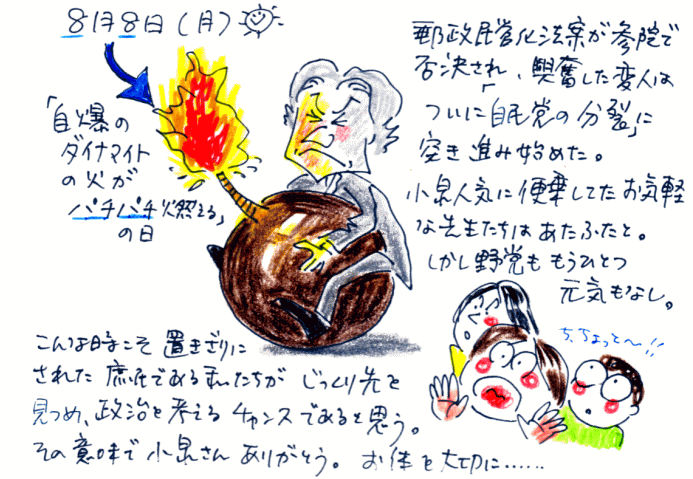 8月8日(月)
「自爆の
ダイナマイト
の火が
パチパチ燃える」
の日
郵政民営化法案が参院で
否決され、興奮した変人は
ついに「自民党の分裂」に
突き進み始めた。
小泉人気に便乗してたお気軽
な先生たちはあたふたと。
しかし野党ももうひとつ
元気もなし。
ち、ちょっと〜!!
こんな時こそ置きざりに
された庶民である私たちがじっくり先を
見つめ、政治を考えるチャンスであると思う。
その意味で小泉さんありがとう。お体を大切に……